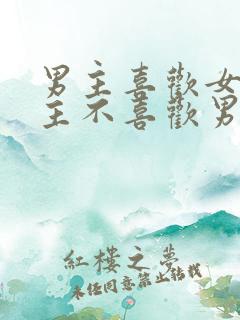 男主喜歡女
主不喜歡男
紅樓之夢
未經同意禁止轉載